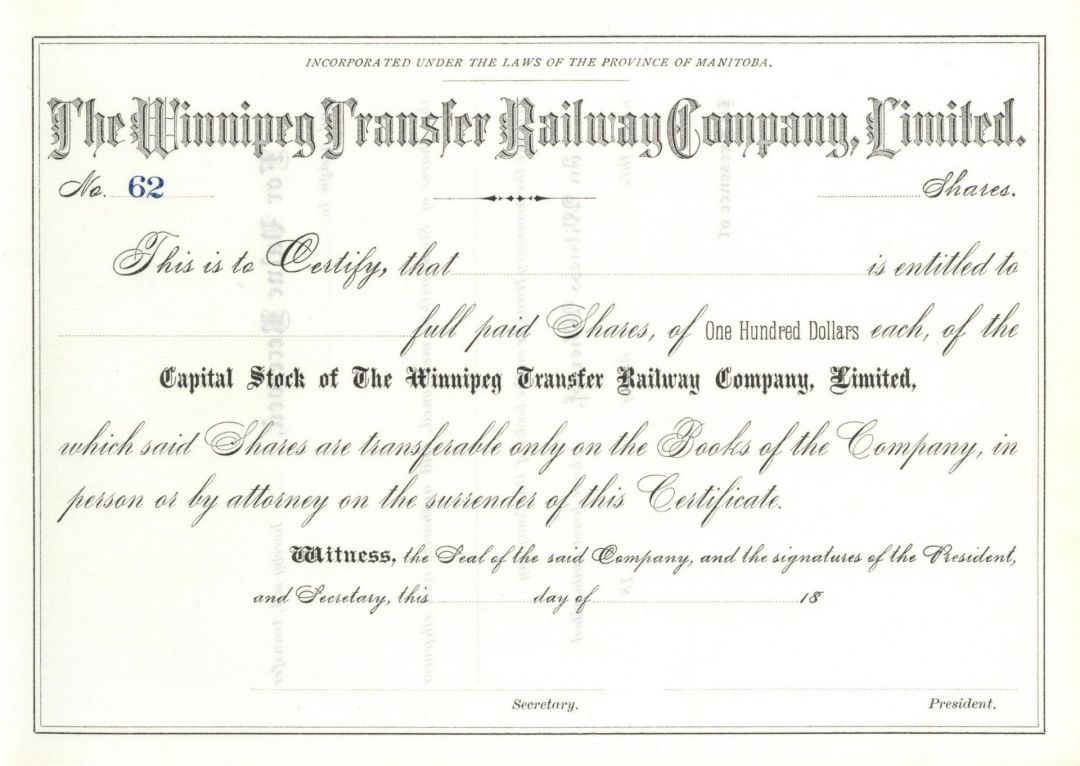 INCORPORATED UNDER THE LAWS OF THE PROVINCE OF MANITOBA.
The Winnipeg Transfer Railway Company, Limited.
No. 62 Shares.
This is to Certify, that is entitled to
full paid Shares, of One Hundred Dollars each, of the
Capital Stock of The Winnipeg Transfer Railway Company, Limited,
which said Shares are transferable only on the Books of the Company, in
person or by attorney on the surrender of this Certificate.
Witness, the Seal of the said Company, and the signatures of the President,
and Secretary, this day of 18
Secretary. President.